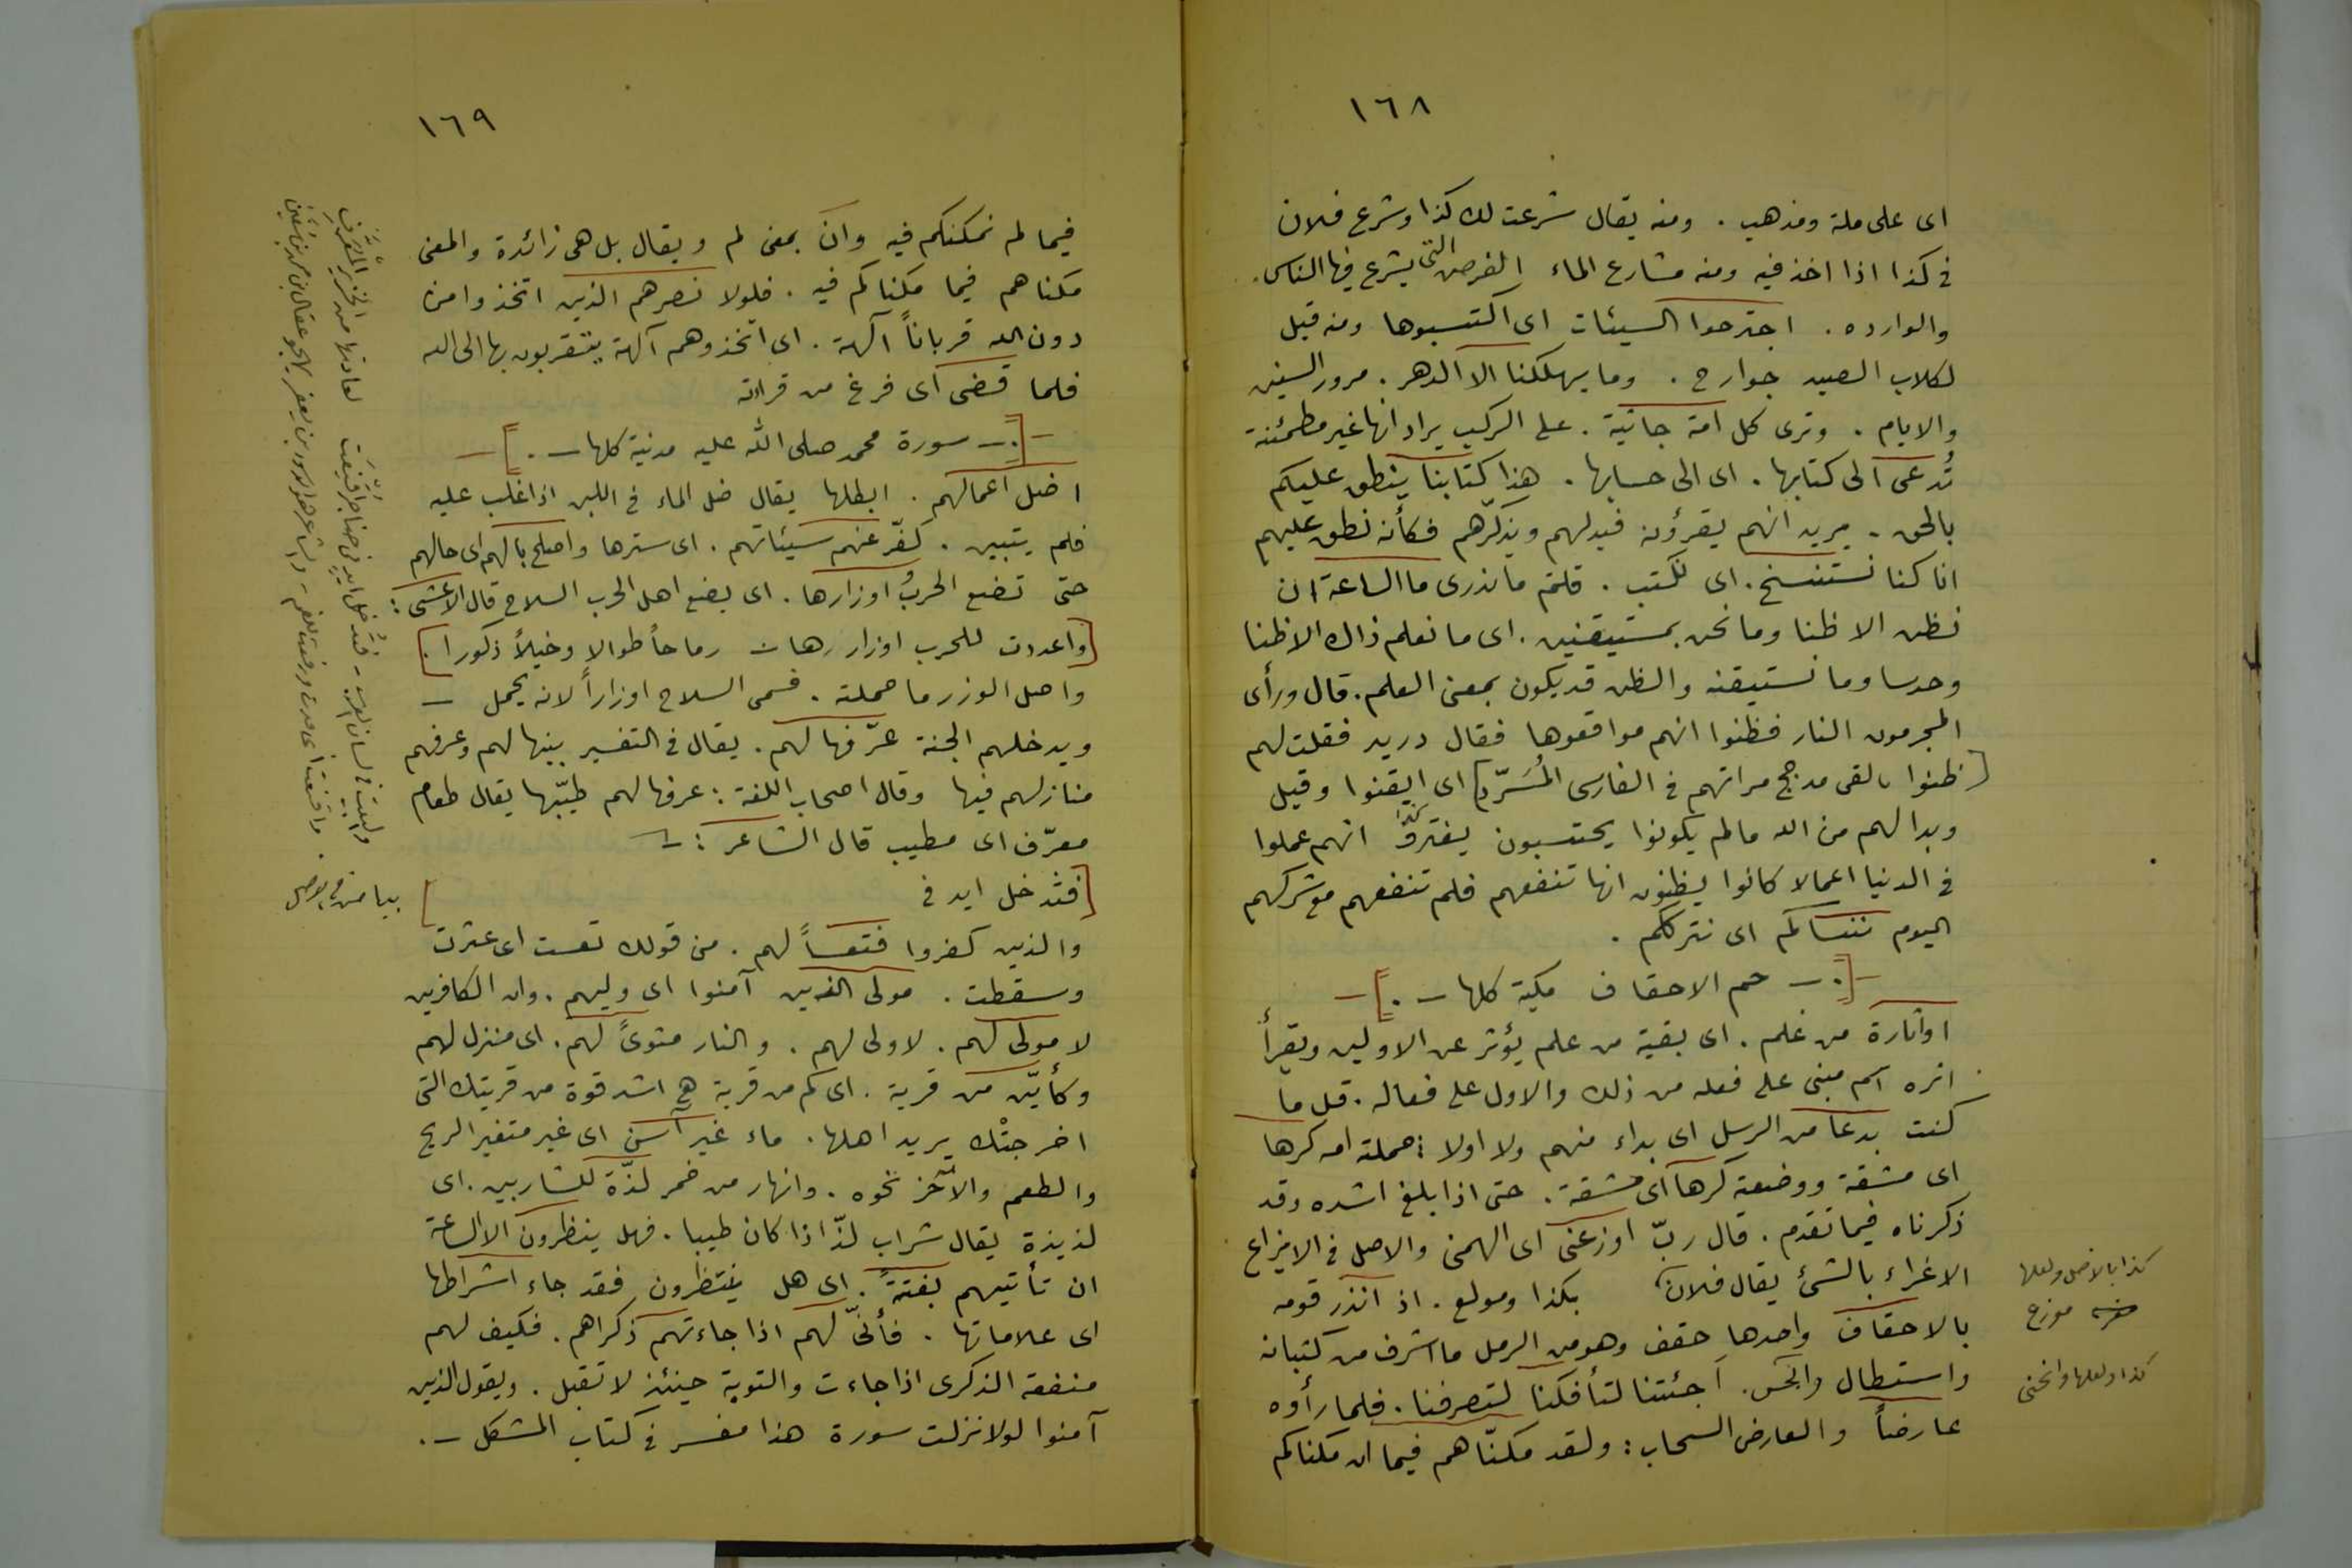 ١٦٨
اى على ملة ومذهب . ومنه يقال شرعت لك كذا وشرع فلان
فى كذا اذا اخذ فيه ومنه مشارع الماء الفرص التى يشرع فيها الناس .
والوارده . اجترحوا السيئات اى اكتسبوها ومنه قيل
لكلاب الصيد جوارح . وما يهلكنا الا الدهر . مرور السنين
والايام . وترى كل امة جاثية . على الركب يراد انها غير مطمئنة
تُدعى الى كتابها . اى الى حسابها . هذا كتابنا ينطق عليكم
بالحق . يريد انهم يقرؤنه فيدلهم ويذكّرهم فكأنه نطق عليهم
انا كنا نستنسخ . اى نكتب . قلتم ما ندرى ما الساعة ان
نظن الا ظنا وما نحن بمستيقنين . اى ما نعلم ذاك الا ظنا
وحدسا وما نستيقنه والظن قد يكون بمعنى العلم . قال ورأى
المجرمون النار فظنوا انهم مواقعوها فقال دريد فقلت لهم
[ظنوا بالفى مدجج سراتهم فى الفارسى المُسَرّد] اى ايقنوا وقيل
وبدا لهم من الله مالم يكونوا يحتسبون انهم عملوا
فى الدنيا اعمالا كانوا يظنون انها تنفعهم فلم تنفعهم مع شركهم
اليوم ننساكم اى نترككم .
—[. — حم الاحقاف مكية كلها — .]—
او اثارة من علم . اى بقية من علم يؤثر عن الاولين ويقرأ
اثره اسم مبنى على فعله من ذلك والاول على فعاله . قل ما
كنت بدعا من الرسل اى بداء منهم ولا اولا : حملته امه كرها
اى مشقة ووضعته كرها اى مشقة . حتى اذا بلغ اشده وقد
ذكرناه فيما تقدم . قال ربّ اوزعنى اى الهمنى والاصل فى الايزاع
الاغراء بالشئ يقال فلان بكذا ومولع . اذ انذر قومه
بالاحقاف واحدها حقف وهو من الرمل ما اشرف من كثبانه
واستطال وانحس . أجئتنا لتأفكنا لتصرفنا . فلما رأوه
عارضاً والعارض السحاب : ولقد مكنّاهم فيما ان مكناكم
كذا بالاصل ولعلها
موزع
كذا ولعلها وانحنى
١٦٩
فيما لم نمكنكم فيه وان بمعنى لم ويقال بل هى زائدة والمعنى
مكناهم فيما مكناكم فيه . فلولا نصرهم الذين اتخذوا من
دون الله قرباناً آلهة . اى اتخذوهم آلهة يتقربون بها الى الله
فلما قضى اى فرغ من قراءته
—[. — سورة محمد صلى الله عليه مدنية كلها — .]—
اضل اعمالهم . ابطلها يقال ضل الماء فى اللبن اذا غلب عليه
فلم يتبين . كفّر عنهم سيئاتهم . اى سترها واصلح بالهم اى حالهم
حتى تضع الحربُ اوزارها . اى يضع اهل الحرب السلاح قال الاعشى :
[واعددت للحرب اوزارها — رماحاً طوالا وخيلاً ذكورا .]
واصل الوزر ما حملته . فسمى السلاح اوزاراً لانه يحمل —
ويدخلهم الجنة عرّفها لهم . يقال فى التفسير بينها لهم وعرفهم
منازلهم فيها وقال اصحاب اللغة : عرفها لهم طيّبها يقال طعام
معرّف اى مطيب قال الشاعر : —
[فتدخل ايد فى ]
والذين كفروا فتعساً لهم . من قولك تعست اى عثرت
وسقطت . مولى الذين آمنوا اى وليهم . وان الكافرين
لا مولى لهم . لا ولى لهم . والنار مثوىً لهم . اى منزل لهم
وكأيّن من قرية . اى كم من قرية هى اشد قوة من قريتك التى
اخرجتْك يريد اهلها . ماء غير آسن اى غير متغير الريح
والطعم والآجن نحوه . وانهار من خمر لذّة للشاربين . اى
لذيذة يقال شراب لذّ اذا كان طيبا . فهل ينظرون الا الساعة
ان تأتيهم بغتةً . اى هل ينتظرون فقد جاء اشراطها
اى علاماتها . فأنّى لهم اذا جاءتهم ذكراهم . فكيف لهم
منفعة الذكرى اذا جاءت والتوبة حينئذ لا تقبل . ويقول الذين
آمنوا لولا نزلت سورة هذا مفسر فى كتاب المشكل — .
والبيت فى لسان العرب — فتدخل ايد فى حناجر اقنعت لعادتها من الخزير المعرّف